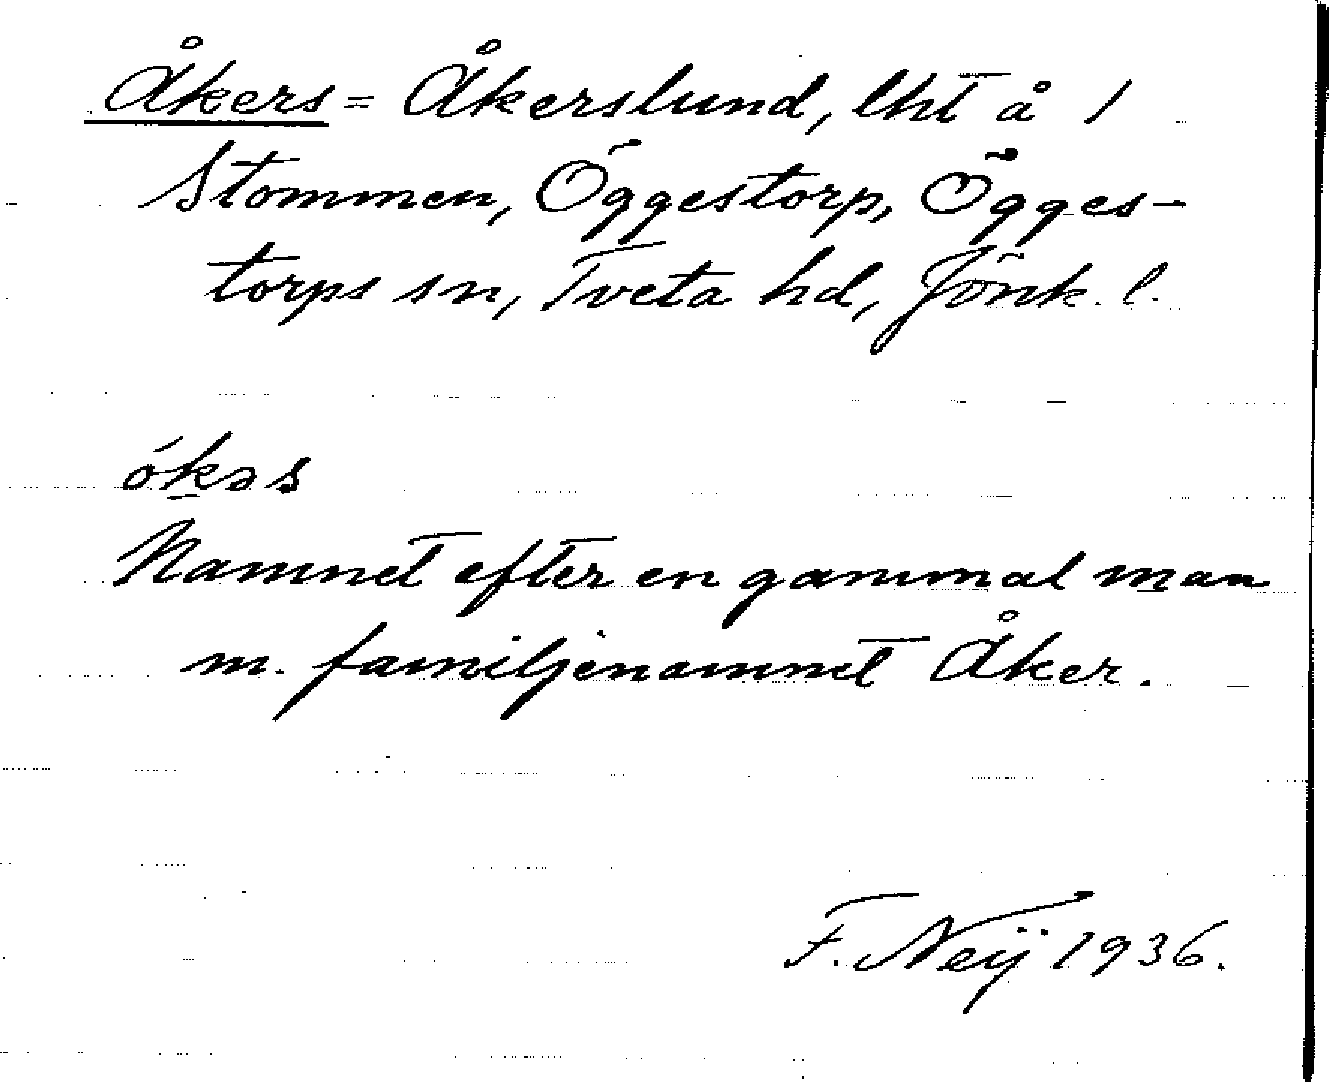 Åkers = Åkerslund, lht å 1
Stommen, Öggestorp, Ögges-
torps sn, Tveta hd, Jönk. l.
ókəs
Namnet efter en gammal man
m. familjenamnet Åker.
F. Neij 1936.